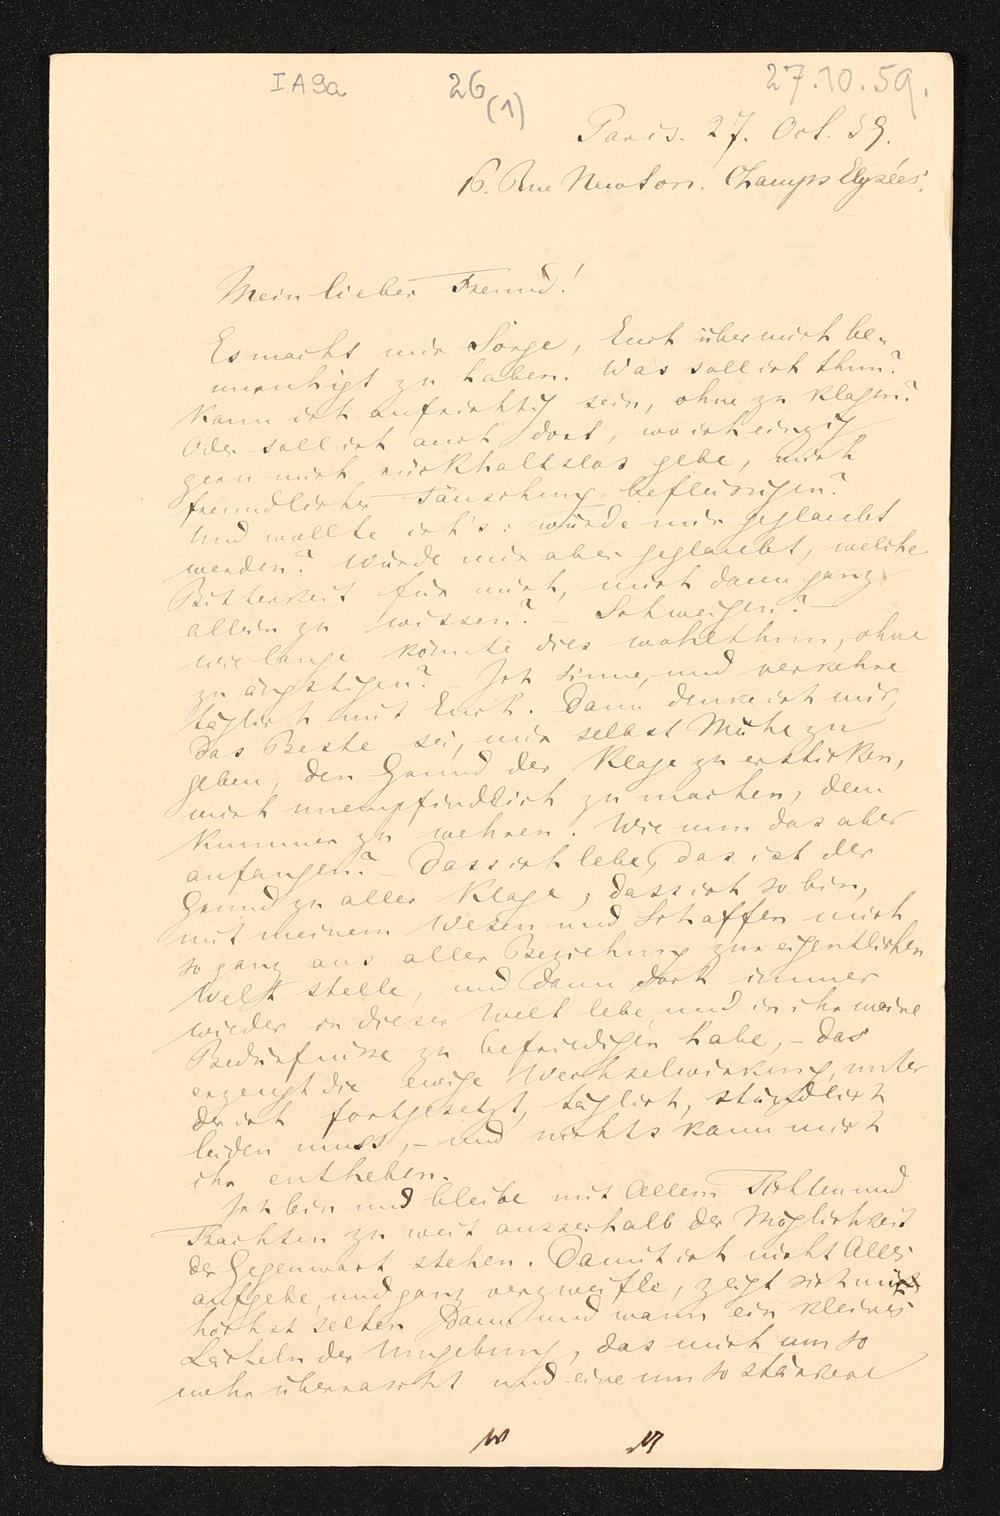 IA9a 26 (1) 27.10.59.
Paris. 27. Oct. 59.
16. Rue Newton. Champs Elysées.
Mein lieber Freund!
Es macht mir Sorge, Euch über mich be-
unruhigt zu haben. Was soll ich thun?
Kann ich aufrichtig sein, ohne zu klagen?
Oder soll ich auch dort, wo ich einzig
gern mich rückhaltslos gebe, mich
freundlicher Täuschung befleissigen?
Und wollte ich's: würde mir geglaubt
werden? Würde mir aber geglaubt, welche
Bitterkeit für mich, mich dann ganz
allein zu wissen? – Schweigen? –
wie lange könnte dies wohlthun, ohne
zu ängstigen? Ich sinne, und verkehre
täglich mit Euch. Dann denke ich mir,
das Beste sei, mir selbst Mühe zu
geben, den Grund der Klage zu ersticken,
mich unempfindlich zu machen, dem
Kummer zu wehren. Wie nun das aber
anfangen? – Dass ich lebe, das ist der
Grund zu aller Klage; dass ich so bin,
mit meinem Wesen und Schaffen mich
so ganz aus aller Beziehung zur eigentlichen
Welt stelle, und dann doch immer
wieder in dieser Welt lebe und in ihr meine
Bedürfnisse zu befriedigen habe, – das
erzeugt die ewige Wechselwirkung, unter
der ich fortgesetzt, täglich, stündlich
leiden muss, – und nichts kann mich
ihr entheben.
Ich bin und bleibe mit Allem Tichten und
Trachten zu weit ausserhalb der Möglichkeit
der Gegenwart stehen. Damit ich nicht Alles
aufgebe und ganz verzweifle, zeigt sich mir
höchst selten dann und wann ein kleines
Lächeln der Umgebung, das mich um so
mehr überrascht und eine um so stärkere